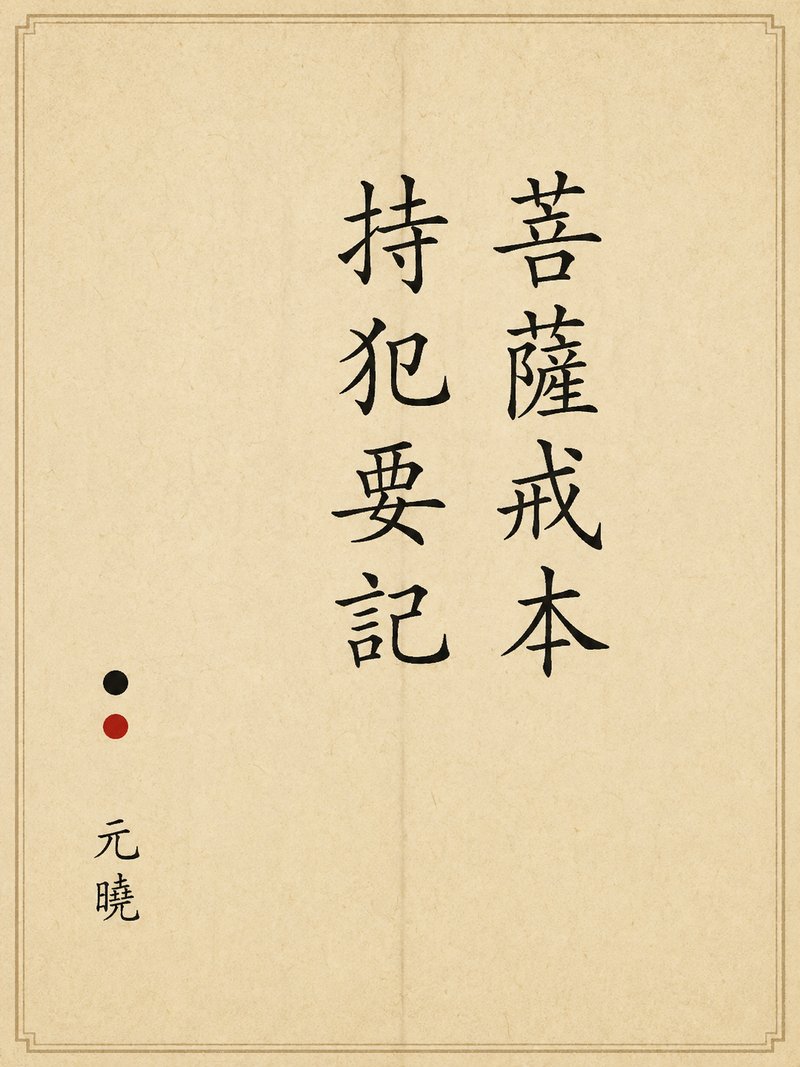 菩薩戒本
持犯要記
元曉